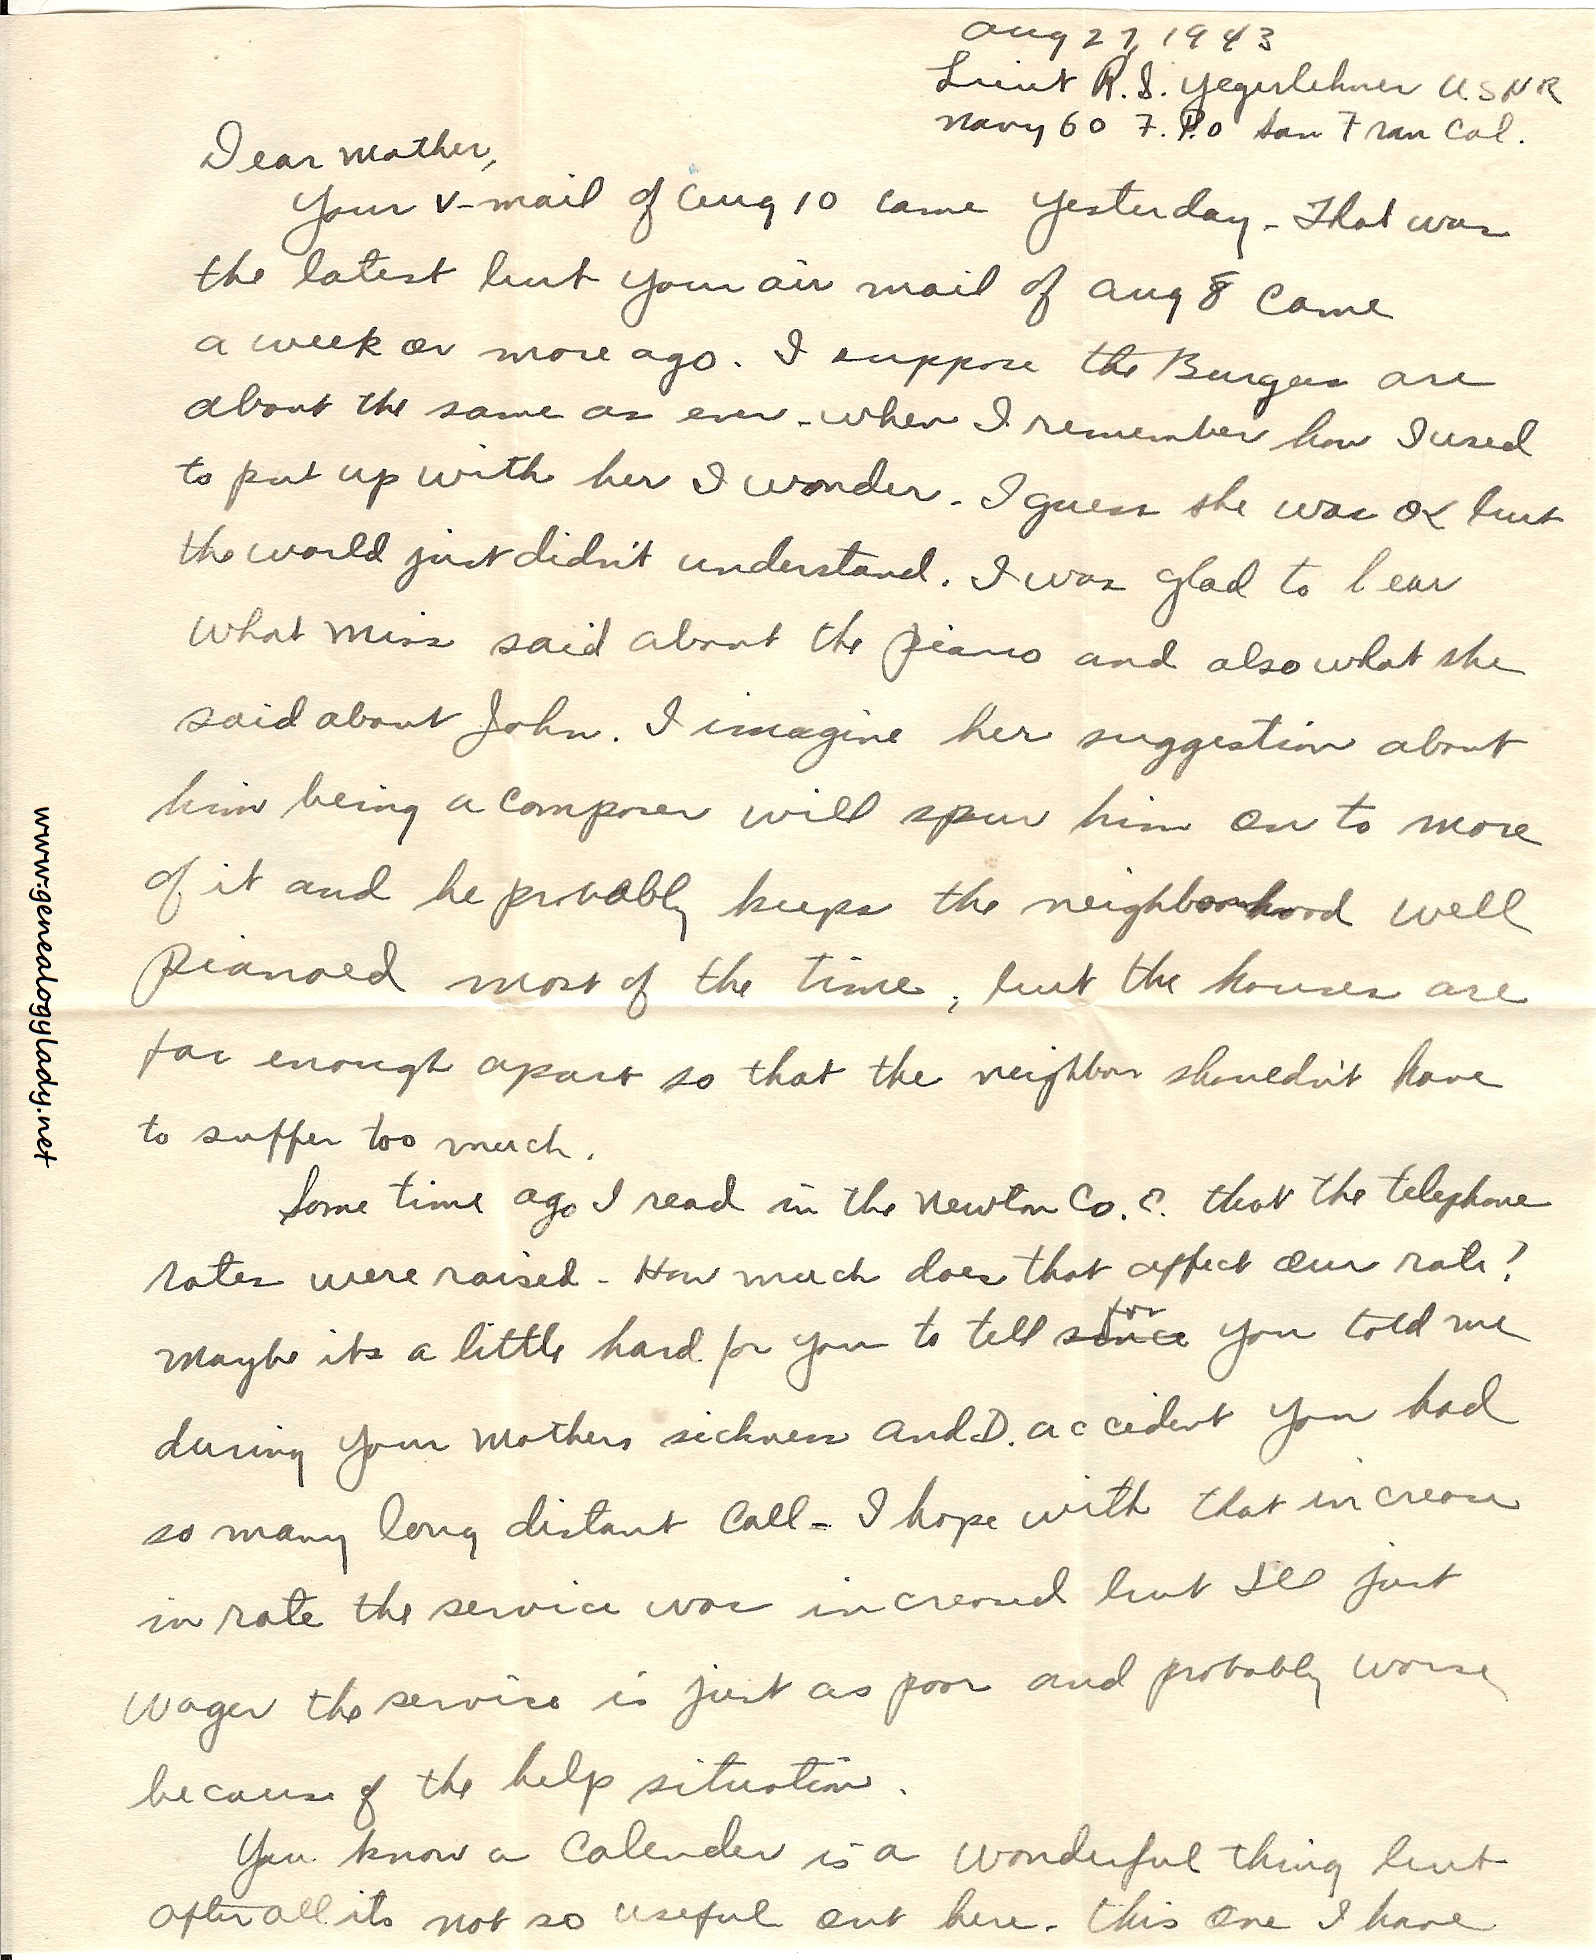 Aug 27, 1943
Lieut R. S. Yegerlehner USNR
Navy 60 F.P.O San Fran Cal.
Dear Mother,
Your V-mail of Aug 10 came yesterday - That was
the latest but your air mail of Aug 8 came
a week or more ago. I suppose the Burgers are
about the same as ever - when I remember how I used
to put up with her I wonder. - I guess she was OK but
the world just didn't understand. I was glad to hear
what Miss said about the piano and also what she
said about John. I imagine her suggestion about
him being a composer will spur him on to more
of it and he probably keeps the neighborhood well
pianoed most of the time, but the houses are
far enough apart so that the neighbors shouldn't have
to suffer too much.
Some time ago I read in the Newton Co. E. that the telephone
rates were raised - How much does that affect our rate?
Maybe its a little hard for you to tell since for you told me
during your Mothers sickness and D. accident you had
so many long distant call - I hope with that increase
in rate the service was increased but I'll just
wager the service is just as poor and probably worse
because of the help situation.
You know a calender is a wonderful thing but
after all its not so useful out here - this one I have
www.genealogylady.net